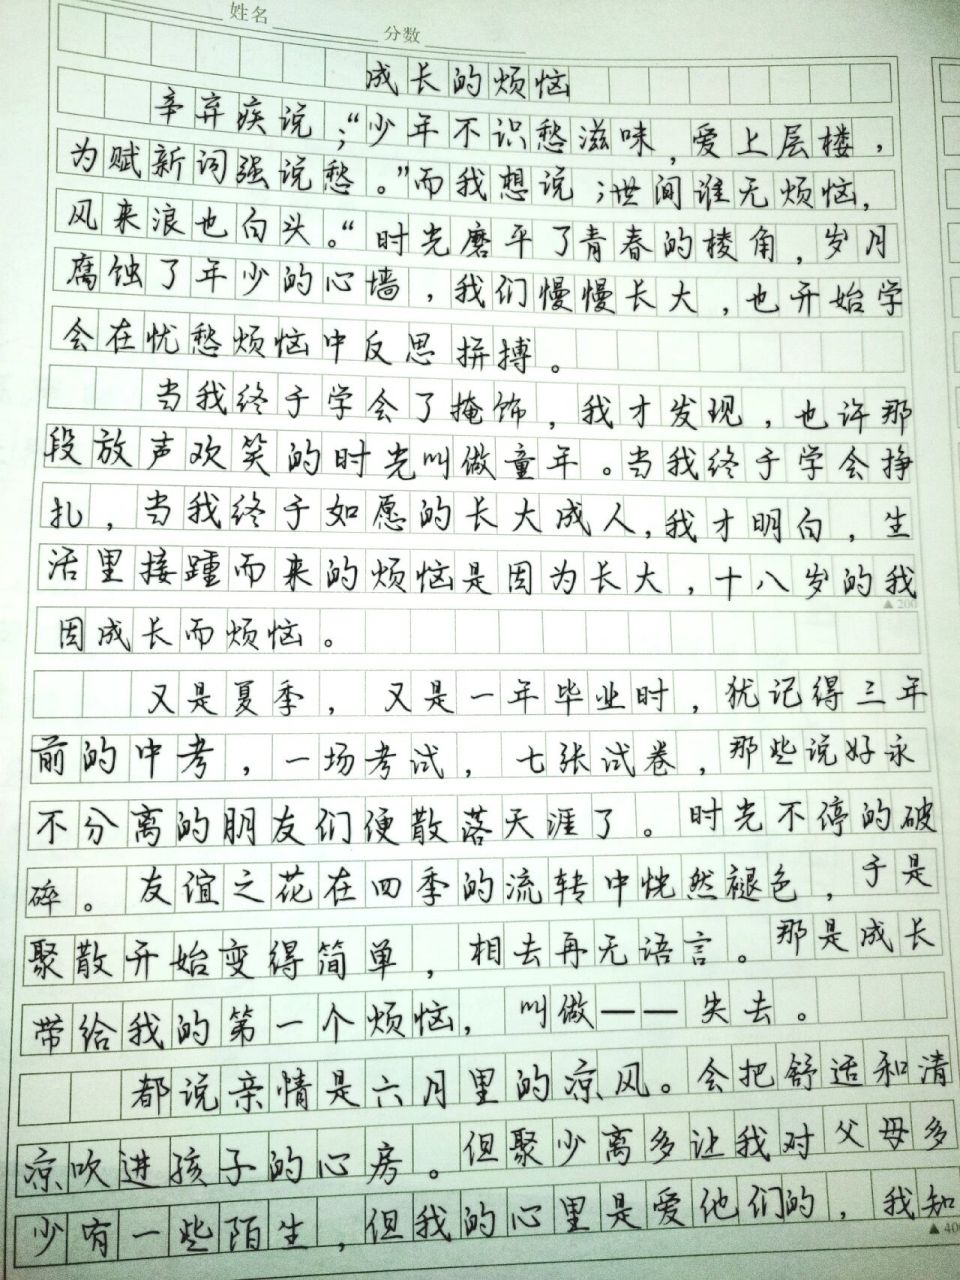 姓名
分数
成长的烦恼
辛弃疾说；“少年不识愁滋味，爱上层楼，
为赋新词强说愁。”而我想说；世间谁无烦恼，
风来浪也白头。“时光磨平了青春的棱角，岁月
腐蚀了年少的心墙，我们慢慢长大，也开始学
会在忧愁烦恼中反思拼搏。
当我终于学会了掩饰，我才发现，也许那
段放声欢笑的时光叫做童年。当我终于学会挣
扎，当我终于如愿的长大成人，我才明白，生
活里接踵而来的烦恼是因为长大，十八岁的我
▲200
因成长而烦恼。
又是夏季，又是一年毕业时，犹记得三年
前的中考，一场考试，七张试卷，那些说好永
不分离的朋友们便散落天涯了。时光不停的破
碎。友谊之花在四季的流转中恍然褪色，于是
聚散开始变得简单，相去再无语言。那是成长
带给我的第一个烦恼，叫做——失去。
都说亲情是六月里的凉风。会把舒适和清
凉吹进孩子的心房。但聚少离多让我对父母多
少有一些陌生，但我的心里是爱他们的，我知
▲400